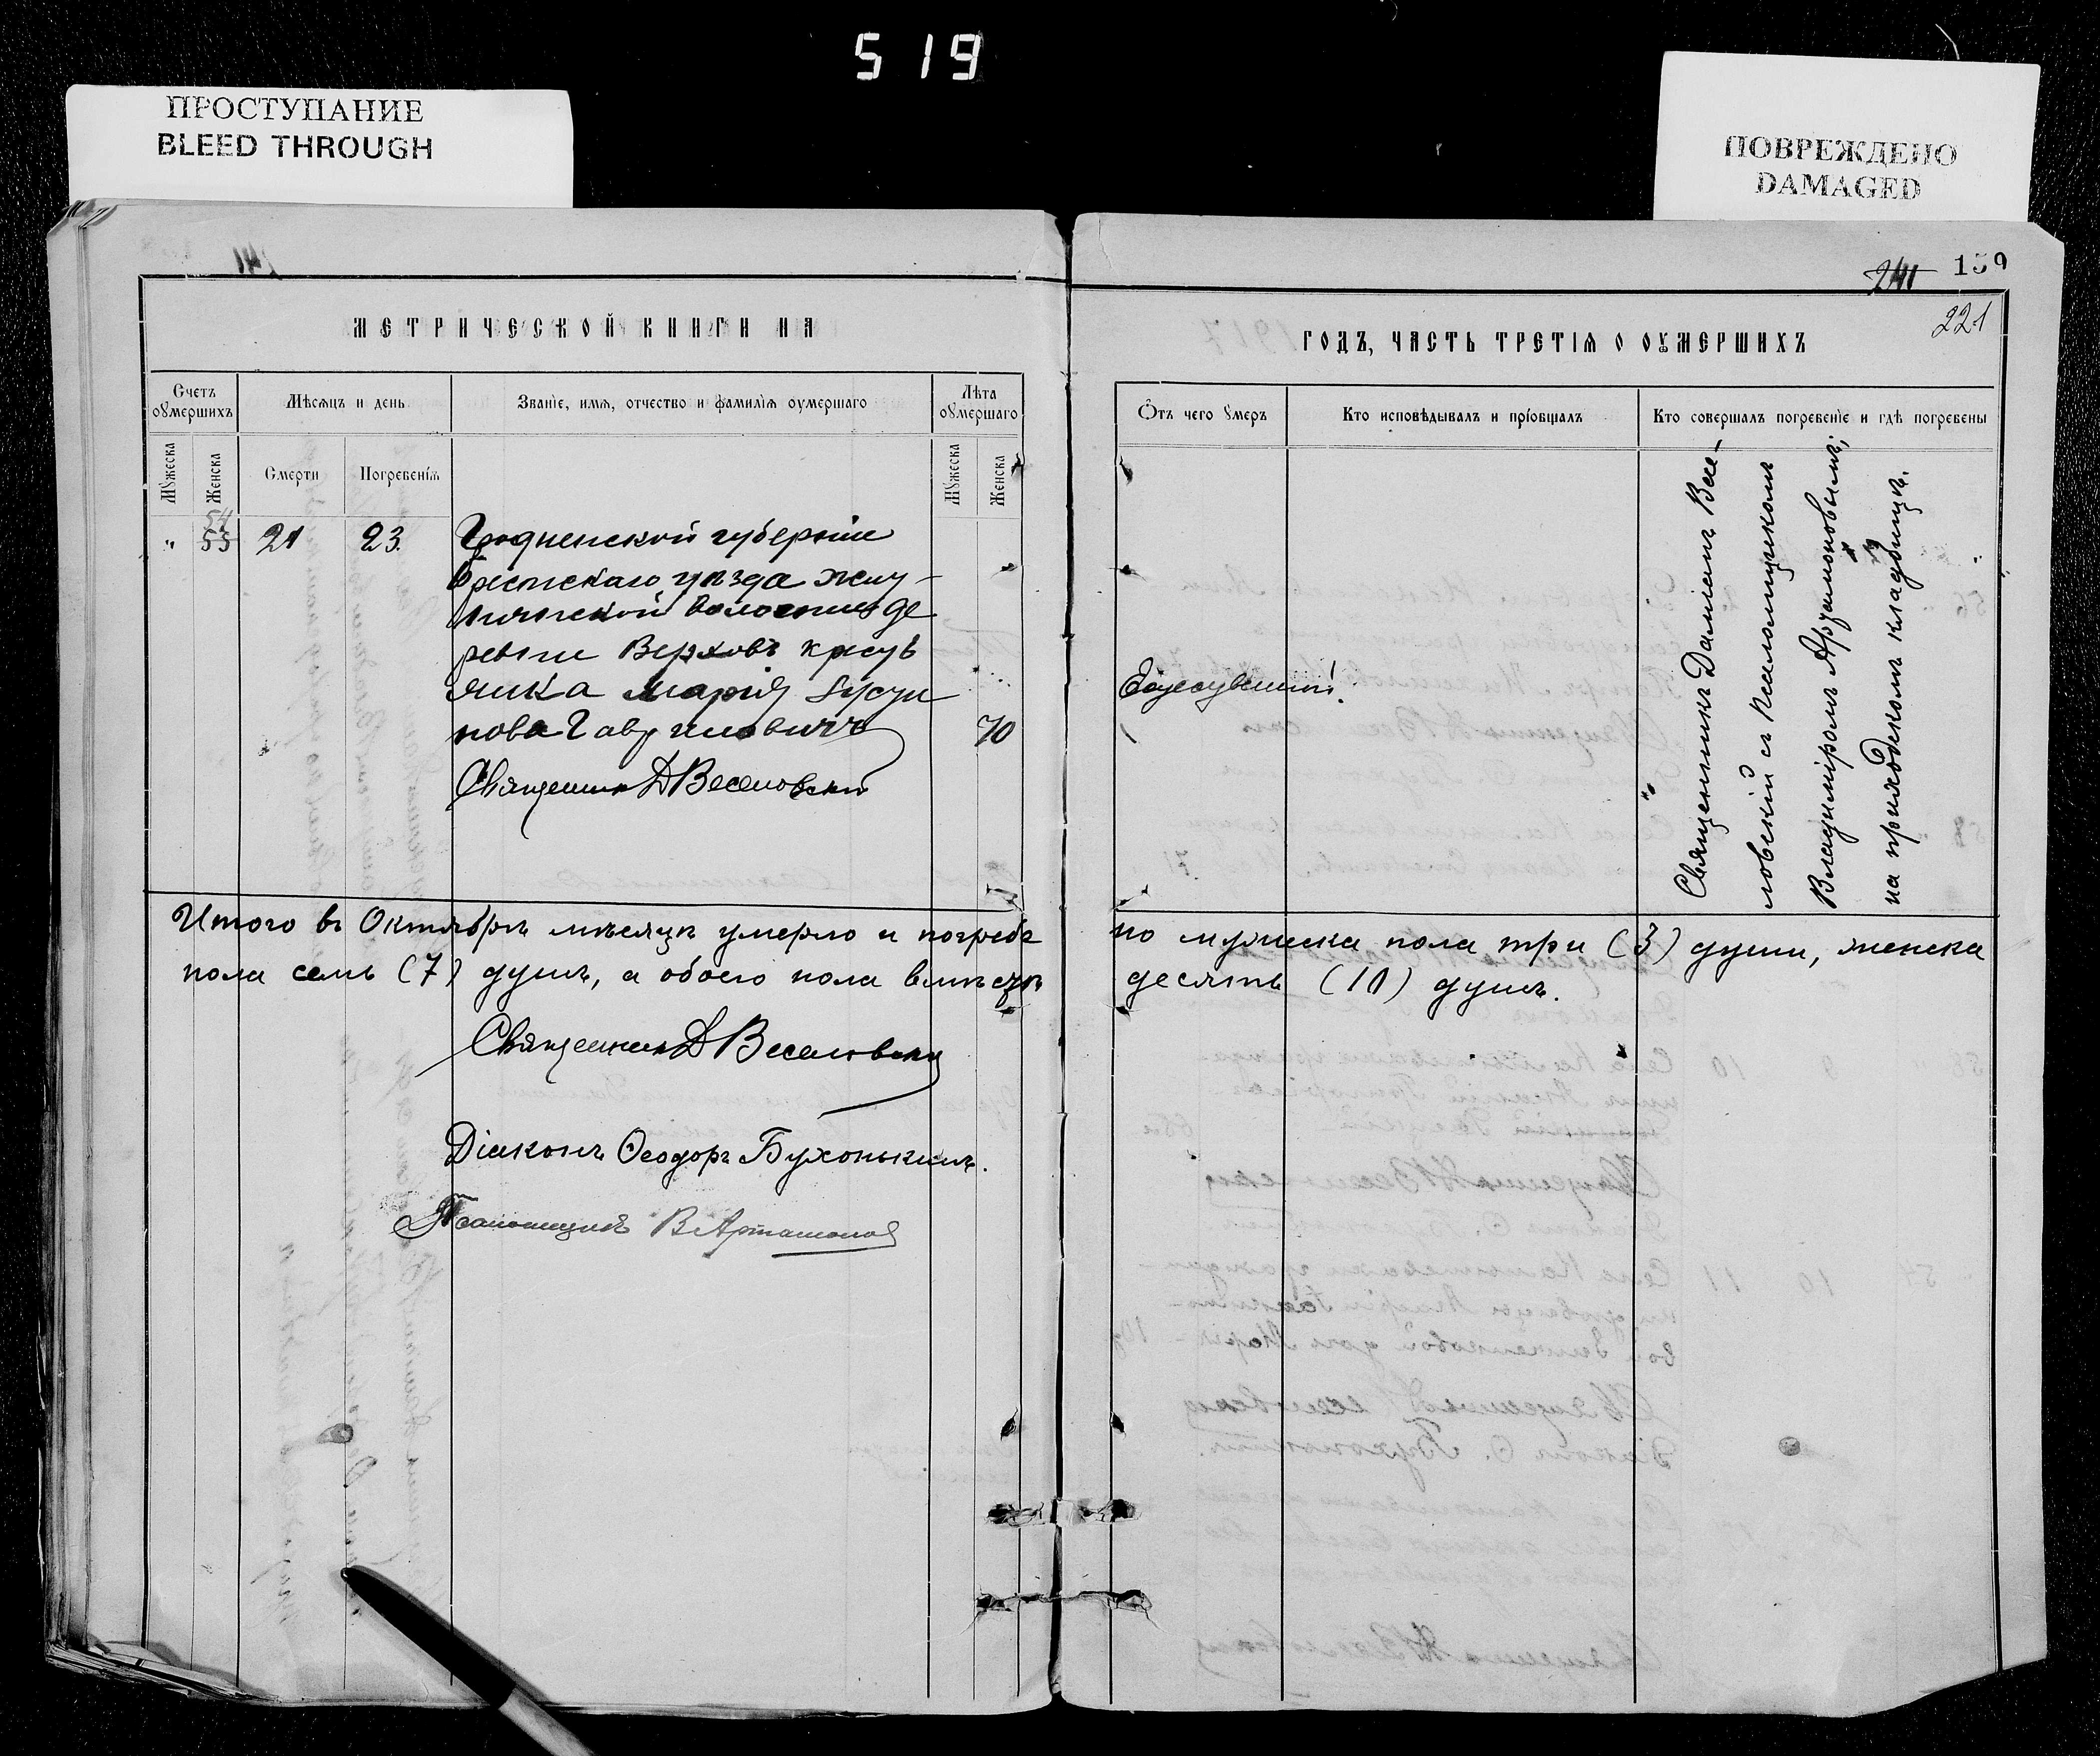 519
ПРОСТУПАНИЕ
BLEED THROUGH
ПОВРЕЖДЕНО
DAMAGED
241 159
221
МЕТРИЧЕСКОЙ КНИГИ НА
ГОДЪ, ЧАСТЬ ТРЕТІЯ О ОУМЕРШИХЪ
Счетъ оумершихъ
Мѣсяцъ и день
Званіе, имя, отчество и фамилія оумершаго
Лѣта оумершаго
Отъ чего умеръ
Кто исповѣдывалъ и пріобщалъ
Кто совершалъ погребеніе и гдѣ погребены
Мужеска
Женска
Смерти
Погребенія
Мужеска
Женска
54
" 55 21 23. Гродненской губерніи
Брестскаго уѣзда
волости де
ревни Верховъ кресть
янка Марія
нова Гавриловичъ 70
Священникъ Д Веселовскій
Священникъ Даміанъ Весе-
ловскій съ псаломщикомъ
Владиміромъ Артамоновымъ;
на приходскомъ кладбищѣ.
Итого въ Октябрѣ мѣсяцѣ умерло и погребе
но мужеска пола три (3) души, женска
пола семь (7) душъ, а обоего пола вмѣстѣ
десять (10) душъ.
Священникъ Д Веселовскій
Діаконъ Ѳеодоръ Бухонькинъ.
Псаломщикъ В Артамоновъ